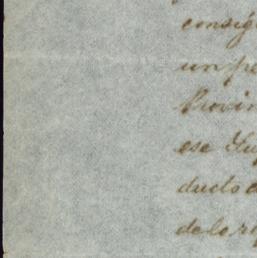 consig
un pe
Provin
ese Su
ducto
de lo r